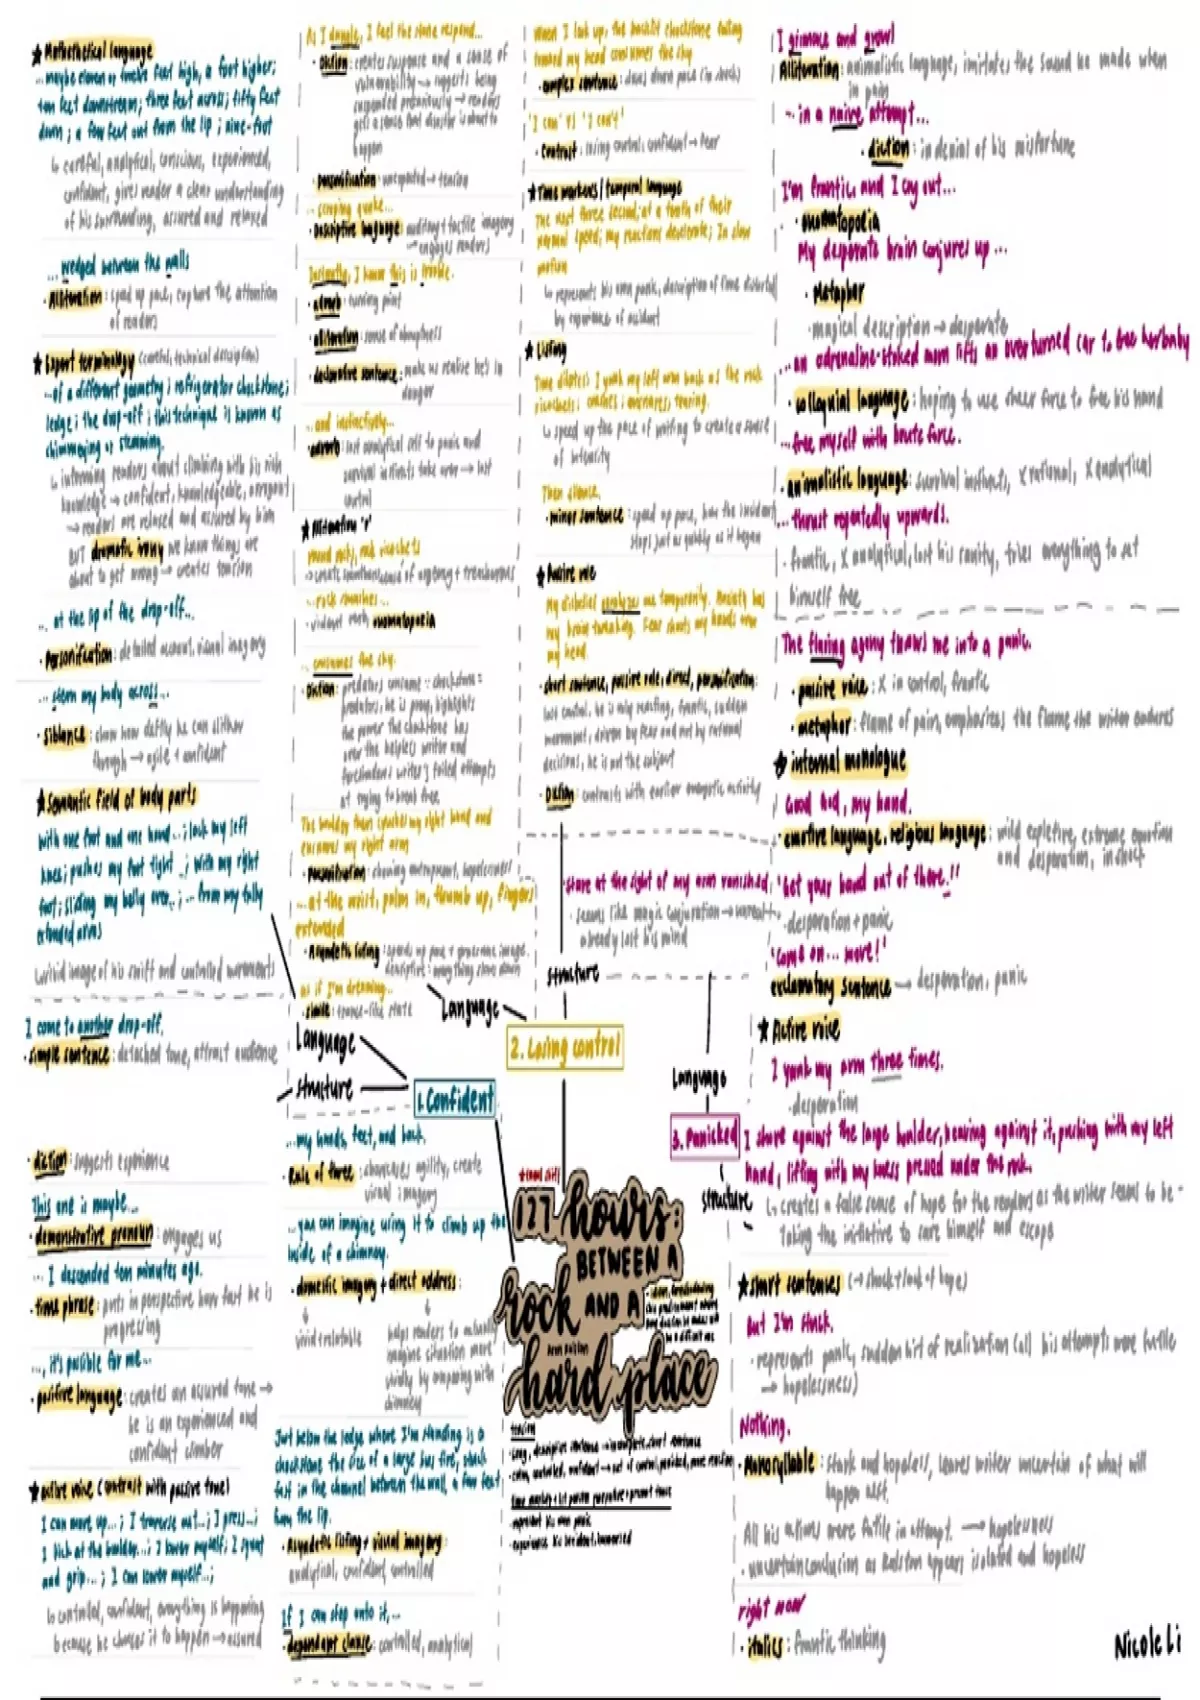 ★ Mathethetical language
... maybe eleven or twelve feet high, a foot higher;
ten feet downstream; three feet across; fifty feet
down; a few feet out from the lip; nine-foot
↳ careful, analytical, conscious, experienced,
confident, gives reader a clear understanding
of his surrounding, assured and relaxed
... wedged between the walls
· Alliteration: speed up pace, capture the attention
of readers
★ Expert terminology (careful, technical description)
...of a different geometry; refrigerator chockstone;
ledge; the drop-off; this technique is known as
chimneying or stemming.
↳ informing readers about climbing with his rich
knowledge → confident, knowledgeable, arrogant
→ readers are relaxed and assured by him
BUT dramatic irony we know things are
about to get wrong → creates tension
... at the lip of the drop-off...
· Personification: detailed account, visual imagery
... stem my body across...
· Sibilance: show how deftly he can slither
through → agile + confident
★ Semantic field of body parts
with one foot and one hand...; lock my left
knee; pushes my foot tight ...; with my right
foot; sliding my belly over...; ... from my fully
extended arms
↳ vivid image of his swift and controlled movements
I come to another drop-off.
· simple sentence: detached tone, attract audience
· diction: suggests experience
This one is maybe...
· demonstrative pronoun: engages us
... I descended ten minutes ago.
· time phrase: puts in perspective how fast he is
progressing
..., it's possible for me...
· positive language: creates an assured tone →
he is an experienced and
confident climber
★ active voice (contrast with passive tone)
I can move up...; I traverse out...; I press...;
I kick at the boulder...; I lower myself; I squat
and grip...; I can lower myself...;
↳ controlled, confident, everything is happening
because he chooses it to happen → assured
As I dangle, I feel the stone respond...
· Diction: creates suspense and a sense of
vulnerability → suggests being
suspended precariously → readers
gets a sense that disaster is about to
happen
· Personification: unexpected → tension
... scraping quake...
· Descriptive language: auditory + tactile imagery
→ engages readers
Instantly, I know this is trouble.
· adverb: turning point
· alliteration: sense of abruptness
· declarative sentence: make us realise he's in
danger
... and instinctively...
· adverb: lost analytical self to panic and
survival instincts take over → lost
control
★ Alliterating 'r'
... rock smashes...
· violent verb, onomatopoeia
... consumes the sky.
· Diction: predators consume ∵ chockstone =
predators, he is prey, highlights
the power the chockstone has
over the helpless writer and
foreshadows writer's failed attempts
at trying to break free.
The boulder then crushes my right hand and
ensnares my right arm
· Personification: showing entrapment, hopelessness
... at the wrist, palm in, thumb up, fingers
extended
· Asyndetic listing: speeds up pace + gruesome image.
descriptive: everything slows down
as if I'm dreaming...
· simile: trance-like state
Language
Structure
1. Confident
... my hands, feet, and back.
· Rule of three: showcases agility, create
visual imagery
... you can imagine using it to climb up the
inside of a chimney.
· domestic imagery + direct address:
vivid + relatable
helps readers to actually
imagine situation more
vividly by comparing with
chimney
Just below the ledge where I'm standing is a
chockstone the size of a large bus tire, stuck
fast in the channel between the walls, a few feet
from the lip.
· Asyndetic listing + visual imagery:
analytical, confident, controlled
If I can step onto it,...
· dependent clause: controlled, analytical
When I look up, the backlit chockstone falling
toward my head consumes the sky
· complex sentence: slows down pace (in shock)
'I can' vs 'I can't'
· Contrast: losing control; confident → fear
★ Time markers / temporal language
The next three seconds; at a tenth of their
normal speed; my reactions decelerate; In slow
motion
↳ represents his own panic, description of time distorted
by experience of accident
★ Listing
Time dilates; I yank my left arm back as the rock
ricochets; crushes; ensnares; tearing.
↳ speed up the pace of writing to create a sense
of intensity
Then silence.
· minor sentence: speed up pace, how the incident
stops just as quickly as it began
★ Passive role
My disbelief paralyzes me temporarily. Anxiety has
my brain tweaking. Fear shoots my hands over
my head.
· short sentence, passive role, direct, personification:
lost control. he is only reacting, frantic, sudden
movement, driven by fear and not by rational
decisions, he is not the subject
· Diction: contrasts with earlier energetic activity
structure
Language
2. Losing control
stare at the sight of my arm vanished.
· Seems like magic conjuration → unreal +
already lost his mind
Language
3. Panicked
structure
127 hours:
BETWEEN A
rock AND A
hard place
Aron Ralston
tension
· calm, controlled, confident → out of control, panicked, mere reaction
· represent his own panic
I grimace and growl
Alliteration: animalistic language, imitates the sound he made when
in pain
... in a naive attempt...
· diction: in denial of his misfortune
I'm frantic, and I cry out...
· onomatopoeia
My desperate brain conjures up...
· Metaphor
· magical description → desperate
... an adrenaline-stoked mom lifts an overturned car to free her baby
· colloquial language: hoping to use sheer force to free his hand
... free myself with brute force.
· animalistic language: survival instincts, x rational, x analytical
... thrust repeatedly upwards.
· frantic, x analytical, lost his sanity, tries everything to set
himself free
The flaring agony throws me into a panic.
· passive voice: x in control, frantic
· metaphor: flame of pain, emphasizes the flame the writer endures
★ internal monologue
Good God, my hand.
· emotive language, religious language: wild expletive, extreme emotion
and desperation, in shock
'Get your hand out of there!'
· desperation + panic
'Come on... move!'
exclamatory sentence → desperation, panic
★ Active voice
I yank my arm three times.
· desperation
I shove against the large boulder, heaving against it, pushing with my left
hand, lifting with my knees pressed under the rock.
↳ creates a false sense of hope for the readers as the writer seems to be
taking the initiative to save himself and escape
★ short sentences (→ shock + lack of hope)
But I'm stuck.
· represents panic, sudden hint of realization (all his attempts were futile
→ hopelessness)
Nothing.
· Monosyllable: stark and hopeless, leaves writer uncertain of what will
happen next.
All his actions were futile in attempt. → hopelessness
· uncertain conclusion as Ralston appears isolated and hopeless
right now
· italics: frantic thinking
Nicole Li